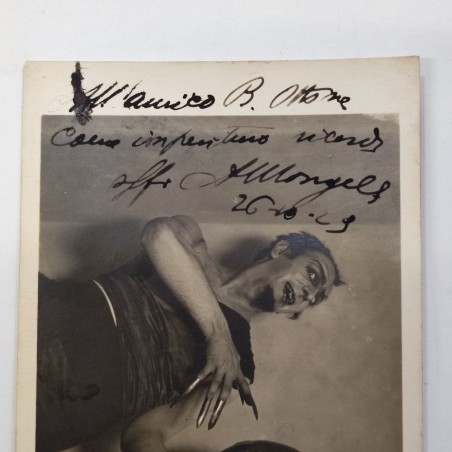 All'amico B. Ottone
Come imperituro ricordo
26-10-29